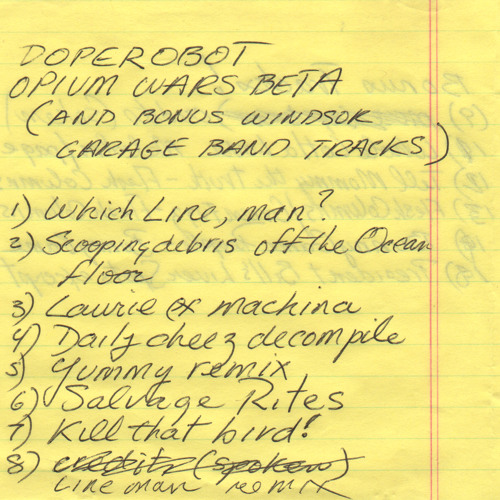 DOPEROBOT
OPIUM WARS BETA
(AND BONUS WINDSOR
GARAGE BAND TRACKS)
1) Which Line, man?
2) Scooping debris off the Ocean
floor
3) Laurie ex machina
4) Daily cheez decompile
5) Yummy remix
6) Salvage Rites
7) Kill that bird!
8) credits (spoken)
line man remix